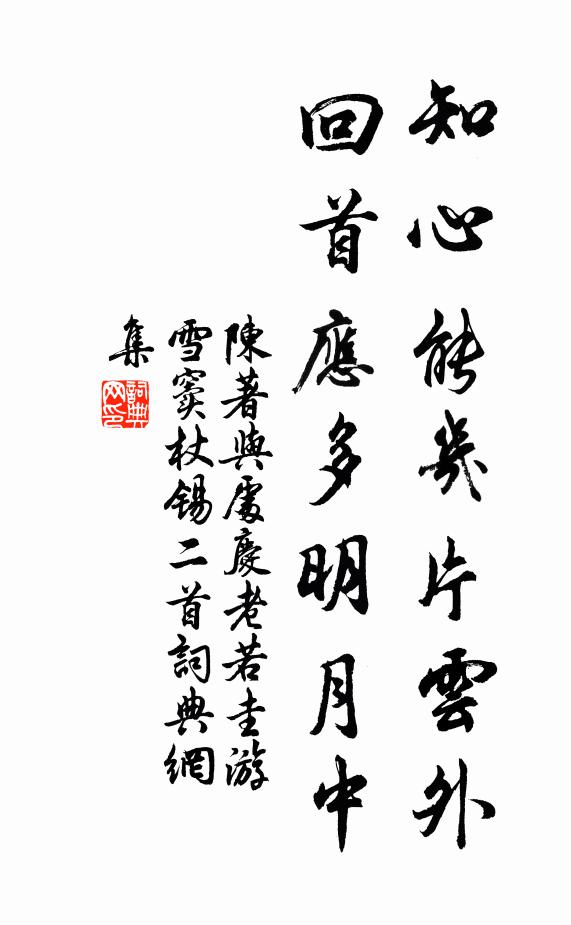 知心能幾片雲外
回首應多明月中
陳著與處慶老若圭游
雪竇杖錫二首詞典網
集
詞典网印